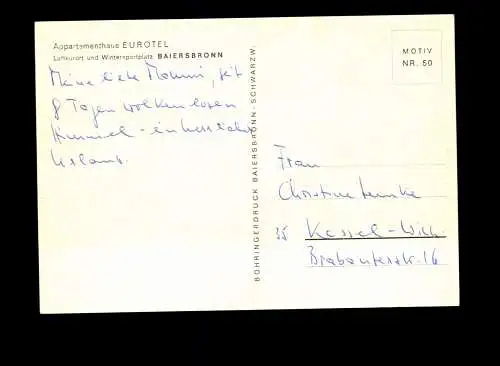 Appartementhaus EUROTEL
Luftkurort und Wintersportplatz BAIERSBRONN
Meine liebe Mommi, seit
8 Tagen wolkenlosen
Himmel - ein herrlicher
Urlaub.
BÖHRINGERDRUCK BAIERSBRONN-SCHWARZW.
MOTIV
NR. 50
Frau
Christine
35 Kassel-Wilh.
Brabanterstr. 16